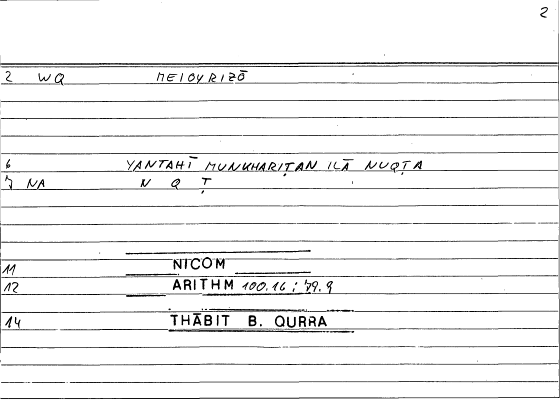 2
2 WQ MEIOYRIZŌ
6 YANTAHĪ MUNKHARIṬAN ILĀ NUQṬA
7 NA N Q Ṭ
11 NICOM
12 ARITHM 100.16 ; 79.9
14 THĀBIT B. QURRA